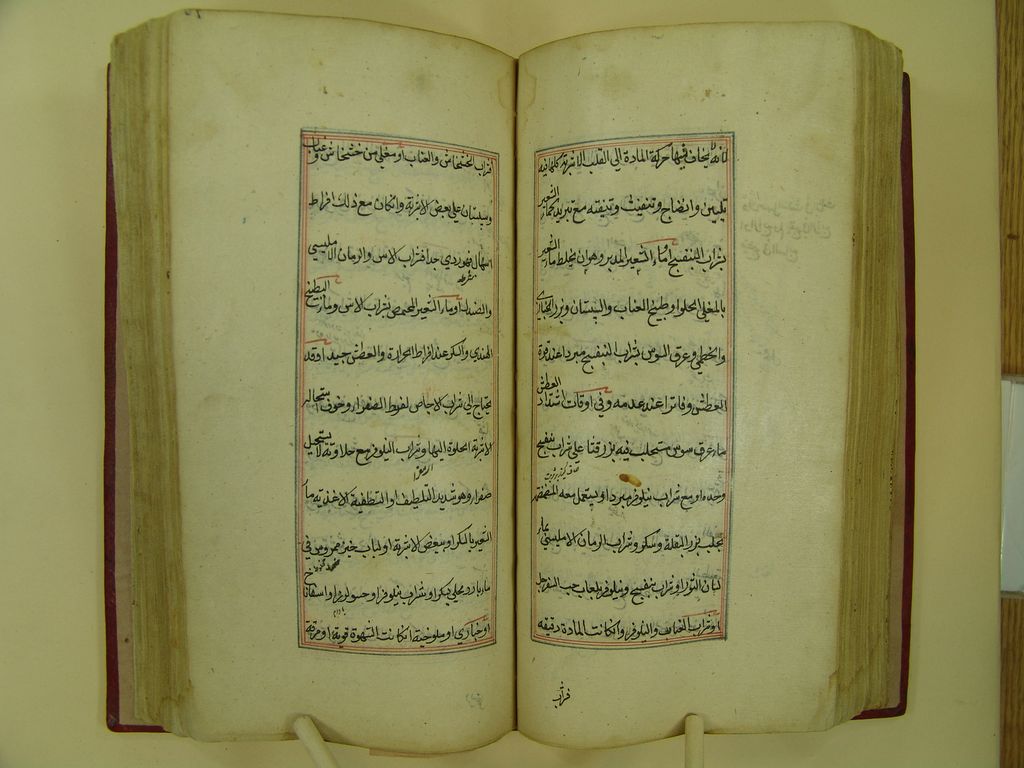 فانه يخاف فيها حركة المادة الى القلب الاشربة كلها فيه
تليين وانضاج وتنفيث وتنقيه مع تبريد كماء الشعير
بشراب البنفسج او ماء الشعير المدبر وهو ان يخلط ماء الشعير
بالمغلى الحلو او طبيخ العناب والسبستان وبزر الخبازى
والخطمى وعرق السوس بشراب البنفسج مبردا عند قوة
العطش وفاترا عند عدمه وفى اوقات اشتداد العطش
ماء عرق سوس مستحلب فيه بزر قثا على شراب بنفسج
وحده او مع شراب نيلوفر مبردا ويستعمل معه
بحليب بزر البقلة وسكر وشراب الرمان الامليسى بماء
لسان الثور او شراب بنفسج ونيلوفر بلعاب حب السفرجل
او شراب الخشخاش والنيلوفر وان كانت المادة رقيقه
شراب
شراب الخشخاش والعناب او مغلى من خشخاش وعناب
وسبستان على بعض الاشربة وان كان مع ذلك افراط
اسهال فهو ردى جدا فشراب الاس والرمان الامليسى
والصندل او ماء الشعير المحمص بشراب الاس وماء البطيخ
الهندى والسكر عند افراط الحرارة والعطش جيد وقد
يحتاج الى شراب الاجاص لفرط الصفراء وخوف استحالة
الاشربة الحلوة اليها وشراب النيلوفر مع حلاوته لا يستحيل
صفراء وهو شديد التلطيف والتطفية الاغذيه ماء
الشعير بالسكر او ببعض الاشربة او لباب خبز ممروس فى
ماء بارد محلى بسكر او شراب نيلوفر او حسو لوز او اسفاناخ
او خبازى او ملوخية ان كانت الشهوة قوية او مرقة